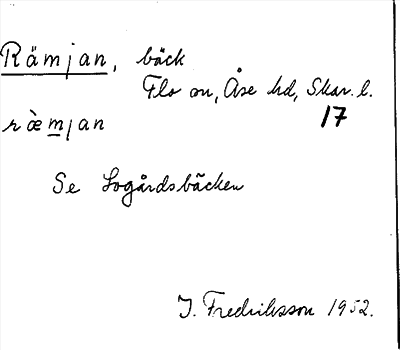 Rämjan, bäck
Flo sn, Åse hd, Skar. l.
17
ræ̀mjan
Se Sogårdsbäcken
I. Fredriksson 1952.